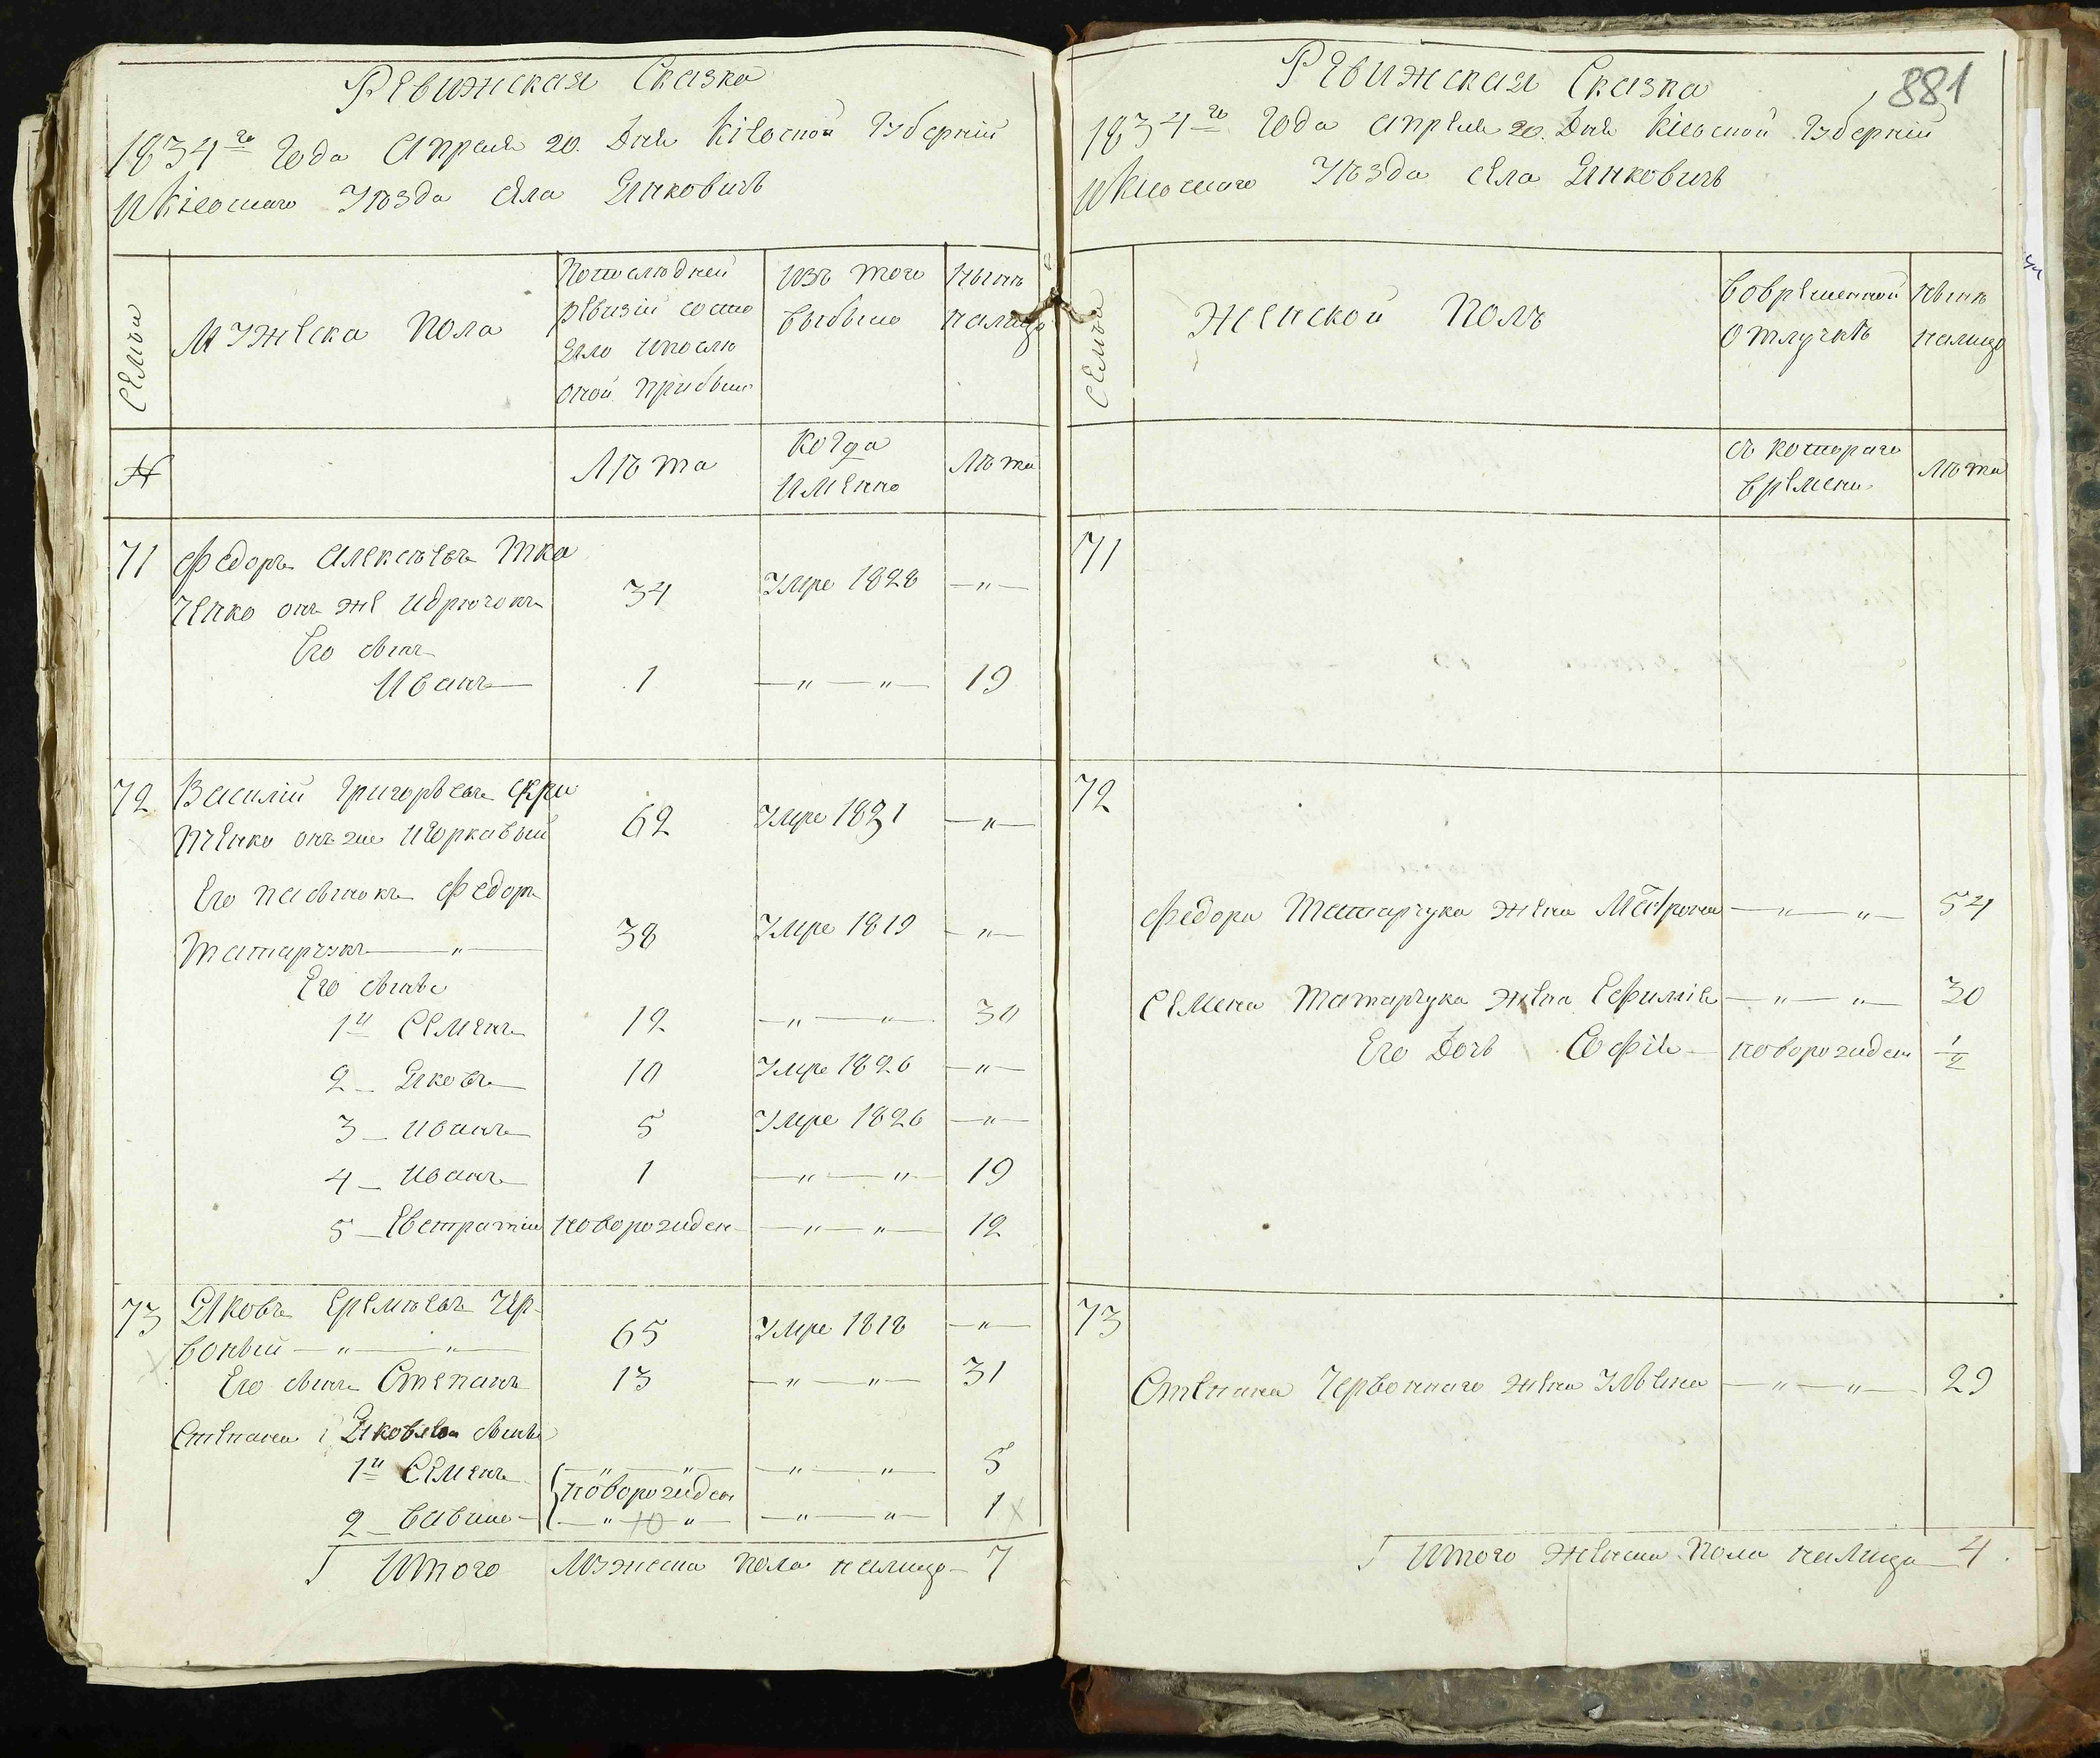 Ревижская Сказка
1834го Года Апреля 20. Дня Кіевской Губерніи
и Кіевскаго Уѣзда села Янковичь
Семьи
Мужеска пола
По последней
ревизіи состо
яло и после
оной прибыло
изъ того
выбыло
ныне
налицо
№
Лѣта
Когда
именно
Лѣта
71 Федоръ Алексѣевъ Тка
ченко онъ же Идрючокъ 34 Умре 1828 — " —
Его сынъ
Иванъ — 1 — " — " — 19
72 Василій Григорьевъ Скри
пченко онъ же 62 Умре 1831 — " —
Его пасынокъ Федоръ
Татарчукъ — " — 38 Умре 1819 — " —
Его сынове
1й Семенъ 12 — " — " — 30
2 – Яковъ 10 Умре 1826 — " —
3 – Иванъ 5 Умре 1826 — " —
4 – Иванъ 1 — " — " — 19
5 – Евстратій новорожден — " — " — 12
73 Яковъ Еремѣевъ Чер-
воный — " — " — 65 Умре 1818 — " —
Его сынъ Степанъ 13 — " — " — 31
Степана Яковлева сынове
1й Семенъ — " — " — — " — " — 5
новорожден
2 – Савва — " 10 " — — " — " — 1 x
Итого Мужеска пола налицо – 7
881
Ревижская Сказка
1834го Года Апреля 20. Дня Кіевской Губерніи
и Кіевскаго Уѣзда села Янковичь
Семьи
Женской Полъ
Во временной
отлучкѣ
ныне
налицо
съ котораго
времени
Лѣта
71
72
Федора Татарчука жена Матрона — " — " — 54
Семена Татарчука жена Ефимія — " — " — 30
Его Дочь Софія — новорожден 1/2
73
Степана Червоннаго жена Ульяна — " — " — 29
Итого женска пола налицо 4.